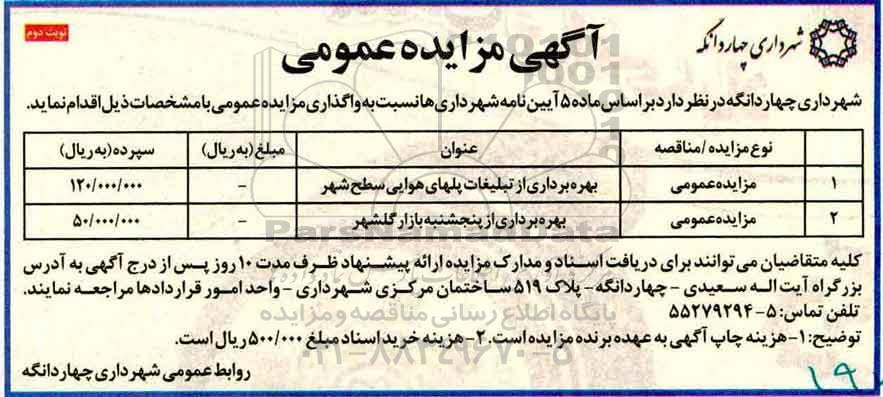 نوبت دوم
شهرداری چهاردانگه
آگهی مزایده عمومی
شهرداری چهاردانگه در نظر دارد بر اساس ماده ۵ آیین نامه شهرداری ها نسبت به واگذاری مزایده عمومی با مشخصات ذیل اقدام نماید.
نوع مزایده / مناقصه عنوان مبلغ (به ریال) سپرده (به ریال)
۱ مزایده عمومی بهره برداری از تبلیغات پلهای هوایی سطح شهر - ۱۲۰/۰۰۰/۰۰۰
۲ مزایده عمومی بهره برداری از پنجشنبه بازار گلشهر - ۵۰/۰۰۰/۰۰۰
ParsNamadData
کلیه متقاضیان می توانند برای دریافت اسناد و مدارک مزایده ارائه پیشنهاد ظرف مدت ۱۰ روز پس از درج آگهی به آدرس
بزرگراه آیت اله سعیدی - چهاردانگه - پلاک ۵۱۹ ساختمان مرکزی شهرداری - واحد امور قراردادها مراجعه نمایند.
تلفن تماس: ۵-۵۵۲۷۹۲۹۴
پایگاه اطلاع رسانی مناقصه و مزایده
توضیح: ۱- هزینه چاپ آگهی به عهده برنده مزایده است. ۲- هزینه خرید اسناد مبلغ ۵۰۰/۰۰۰ ریال است.
۰۲۱-۸۸۳۴۹۶۷۰-۵
روابط عمومی شهرداری چهاردانگه
۱۹